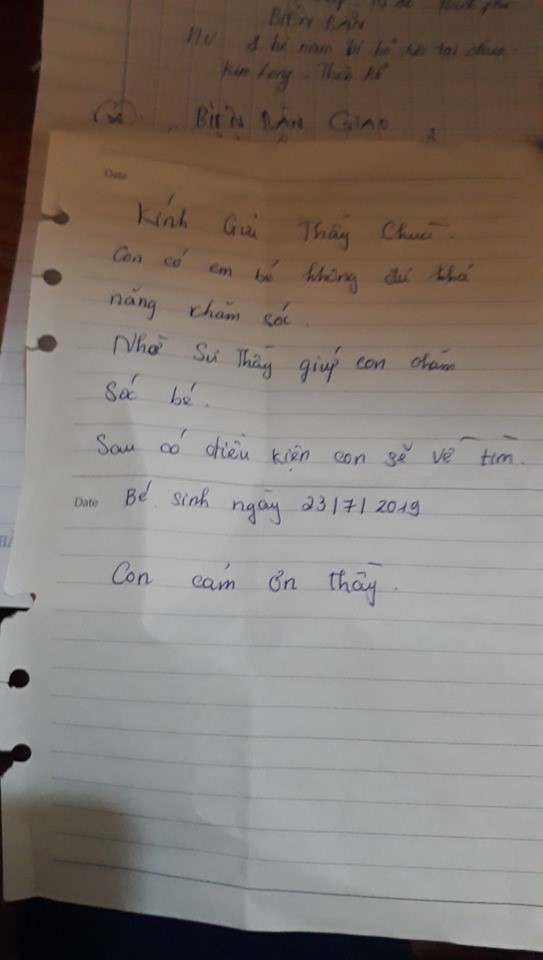 BIÊN BẢN
1 bé nam bị bỏ rơi tại chùa
Kim Long. Theo
BIÊN BẢN GIAO
Date
Kính Gửi Thầy Chùa.
Con có em bé không đủ khả
năng chăm sóc.
Nhờ Sư Thầy giúp con chăm
sóc bé.
Sau có điều kiện con sẽ về tìm.
Date Bé sinh ngày 23/7/2019
Con cảm ơn thầy.